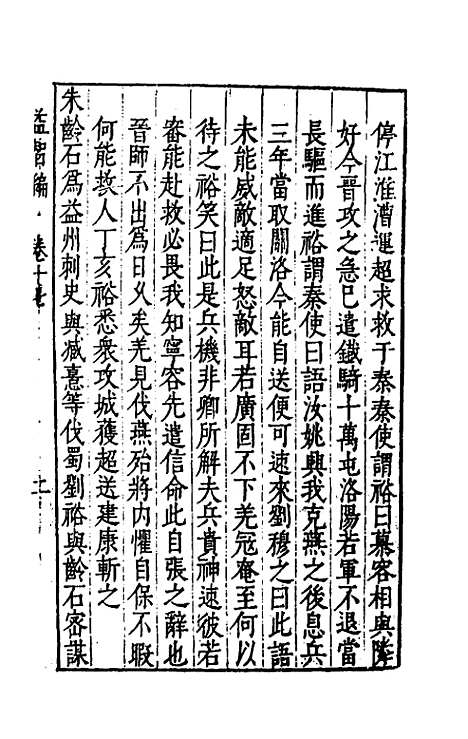 停江淮漕運超求救于秦秦使謂裕曰慕容相與隣
好今晉攻之急已遣鐵騎十萬屯洛陽若軍不退當
長驅而進裕謂秦使曰語汝姚興我克燕之後息兵
三年當取關洛今能自送便可速來劉穆之曰此語
未能威敵適足怒敵耳若廣固不下羌冦奄至何以
待之裕笑曰此是兵機非卿所解夫兵貴神速彼若
審能赴救必畏我知寧容先遣信命此自張之辭也
晉師不出爲日乆矣羌見伐燕殆將内懼自保不暇
何能救人丁亥裕悉衆攻城獲超送建康斬之
朱齡石爲益州刺史與臧憙等伐蜀劉裕與齡石宻謀
益智編 卷十